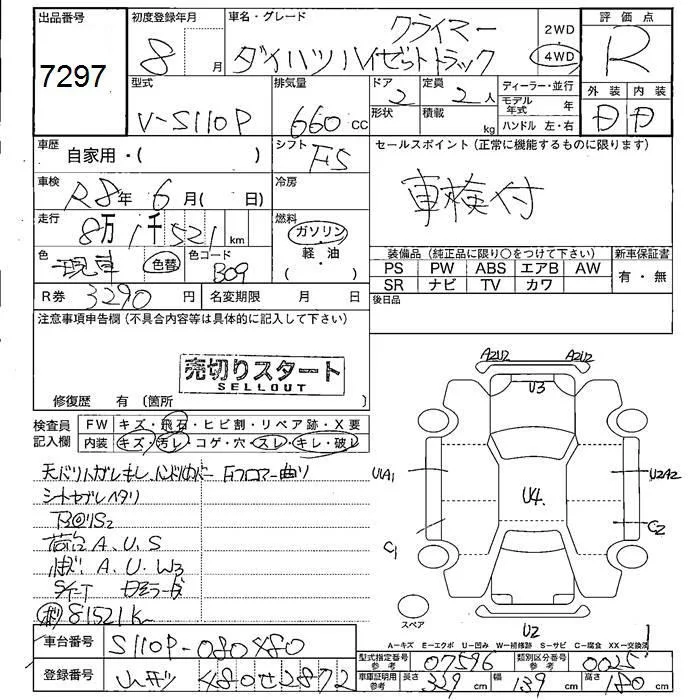 出品番号 7297
初度登録年月 8 月
車名・グレード クライマー
ダイハツハイゼットトラック
2WD
4WD
評価点 R
外装 内装
D D
型式 V-S110P
排気量 660 cc
ドア 2
形状
定員 2人
積載 kg
ディーラー・並行
モデル年式 年
ハンドル 左・右
車歴 自家用・( )
シフト F5
セールスポイント (正常に機能するものに限ります)
車検付
車検 R8年 6月( 日)
冷房
走行 8万1千521 km
燃料 ガソリン
軽・油
( )
色 現車 色替
色コード B09
装備品 (純正品に限り○をつけて下さい)
新車保証書
PS PW ABS エアB AW
SR ナビ TV カワ
有・無
R券 3290 円
名変期限 月 日
後日品
注意事項申告欄 (不具合内容等は具体的に記入して下さい)
売切りスタート
SELLOUT
修復歴 有 (箇所 )
検査員記入欄
FW キズ・飛石・ヒビ割・リペア跡・X要
内装 キズ・汚レ・コゲ・穴・スレ・キレ・破レ
シートセブレヘタリ
荷台 A.U.S
A.U W3
81521K
A2U2 A2U2
U3
U1A1 U2A2
U4.
C1 C2
スペア
U2
A-キズ E-エクボ U-凹み W-補修跡 S-サビ C-腐食 XX-交換済
車台番号 S110P-080X80
型式指定番号 参考 07596
類別区分番号 参考 0025
登録番号 480せ2872
車庫証明用 参考
長さ 329 cm 幅 139 cm 高さ 180 cm